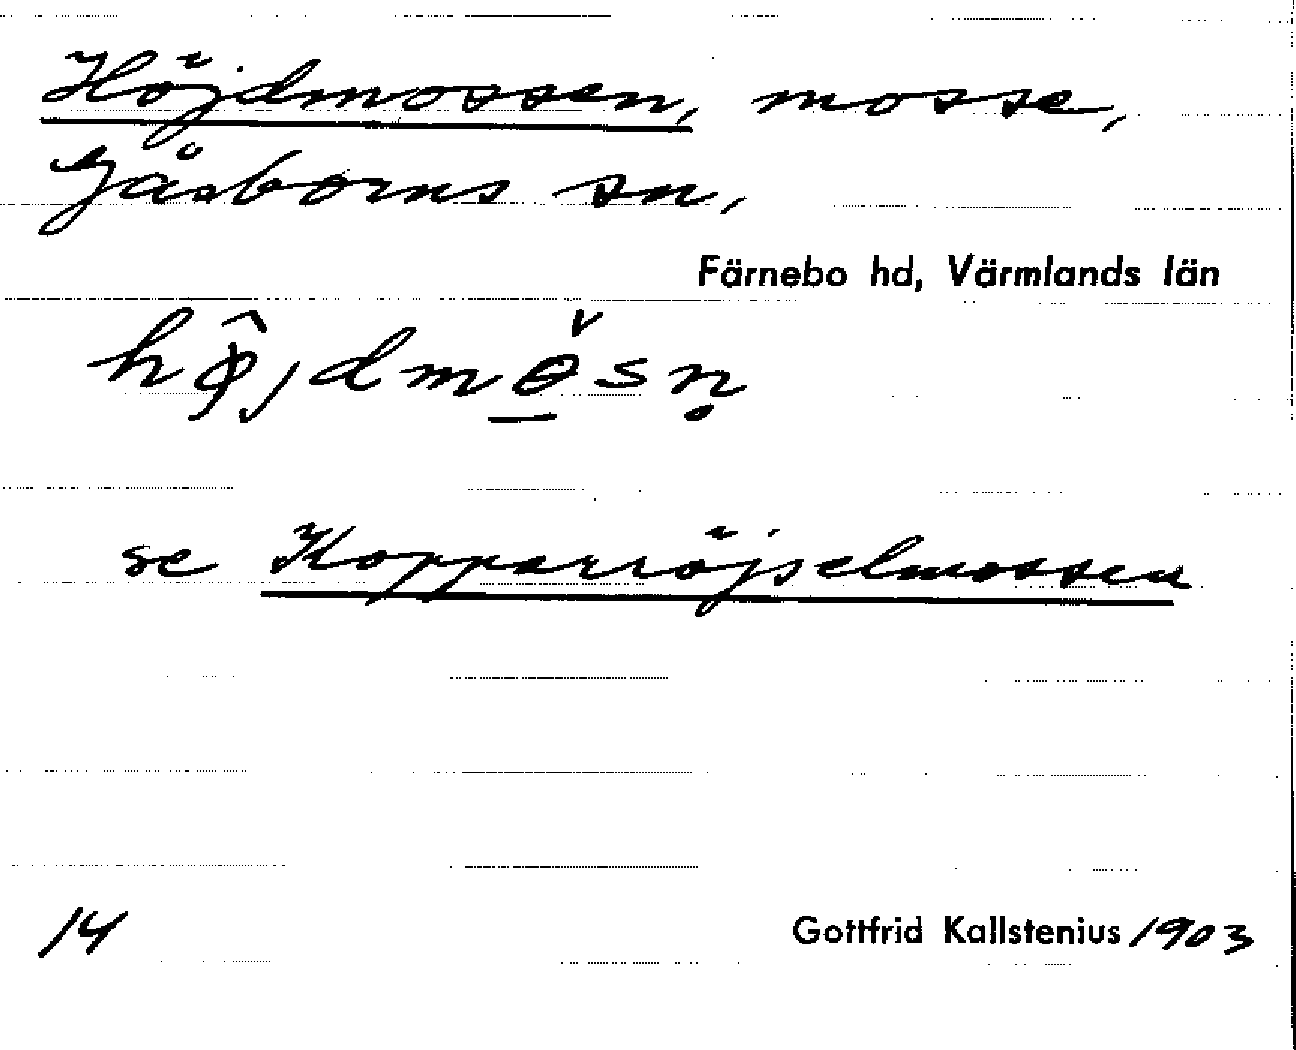 Höjdmossen, mosse,
Gåsborns sn,
Färnebo hd, Värmlands län
hφ̂jdmɵ̠̌sṇ
se Kopparröjselmossen
14 Gottfrid Kallstenius 1903